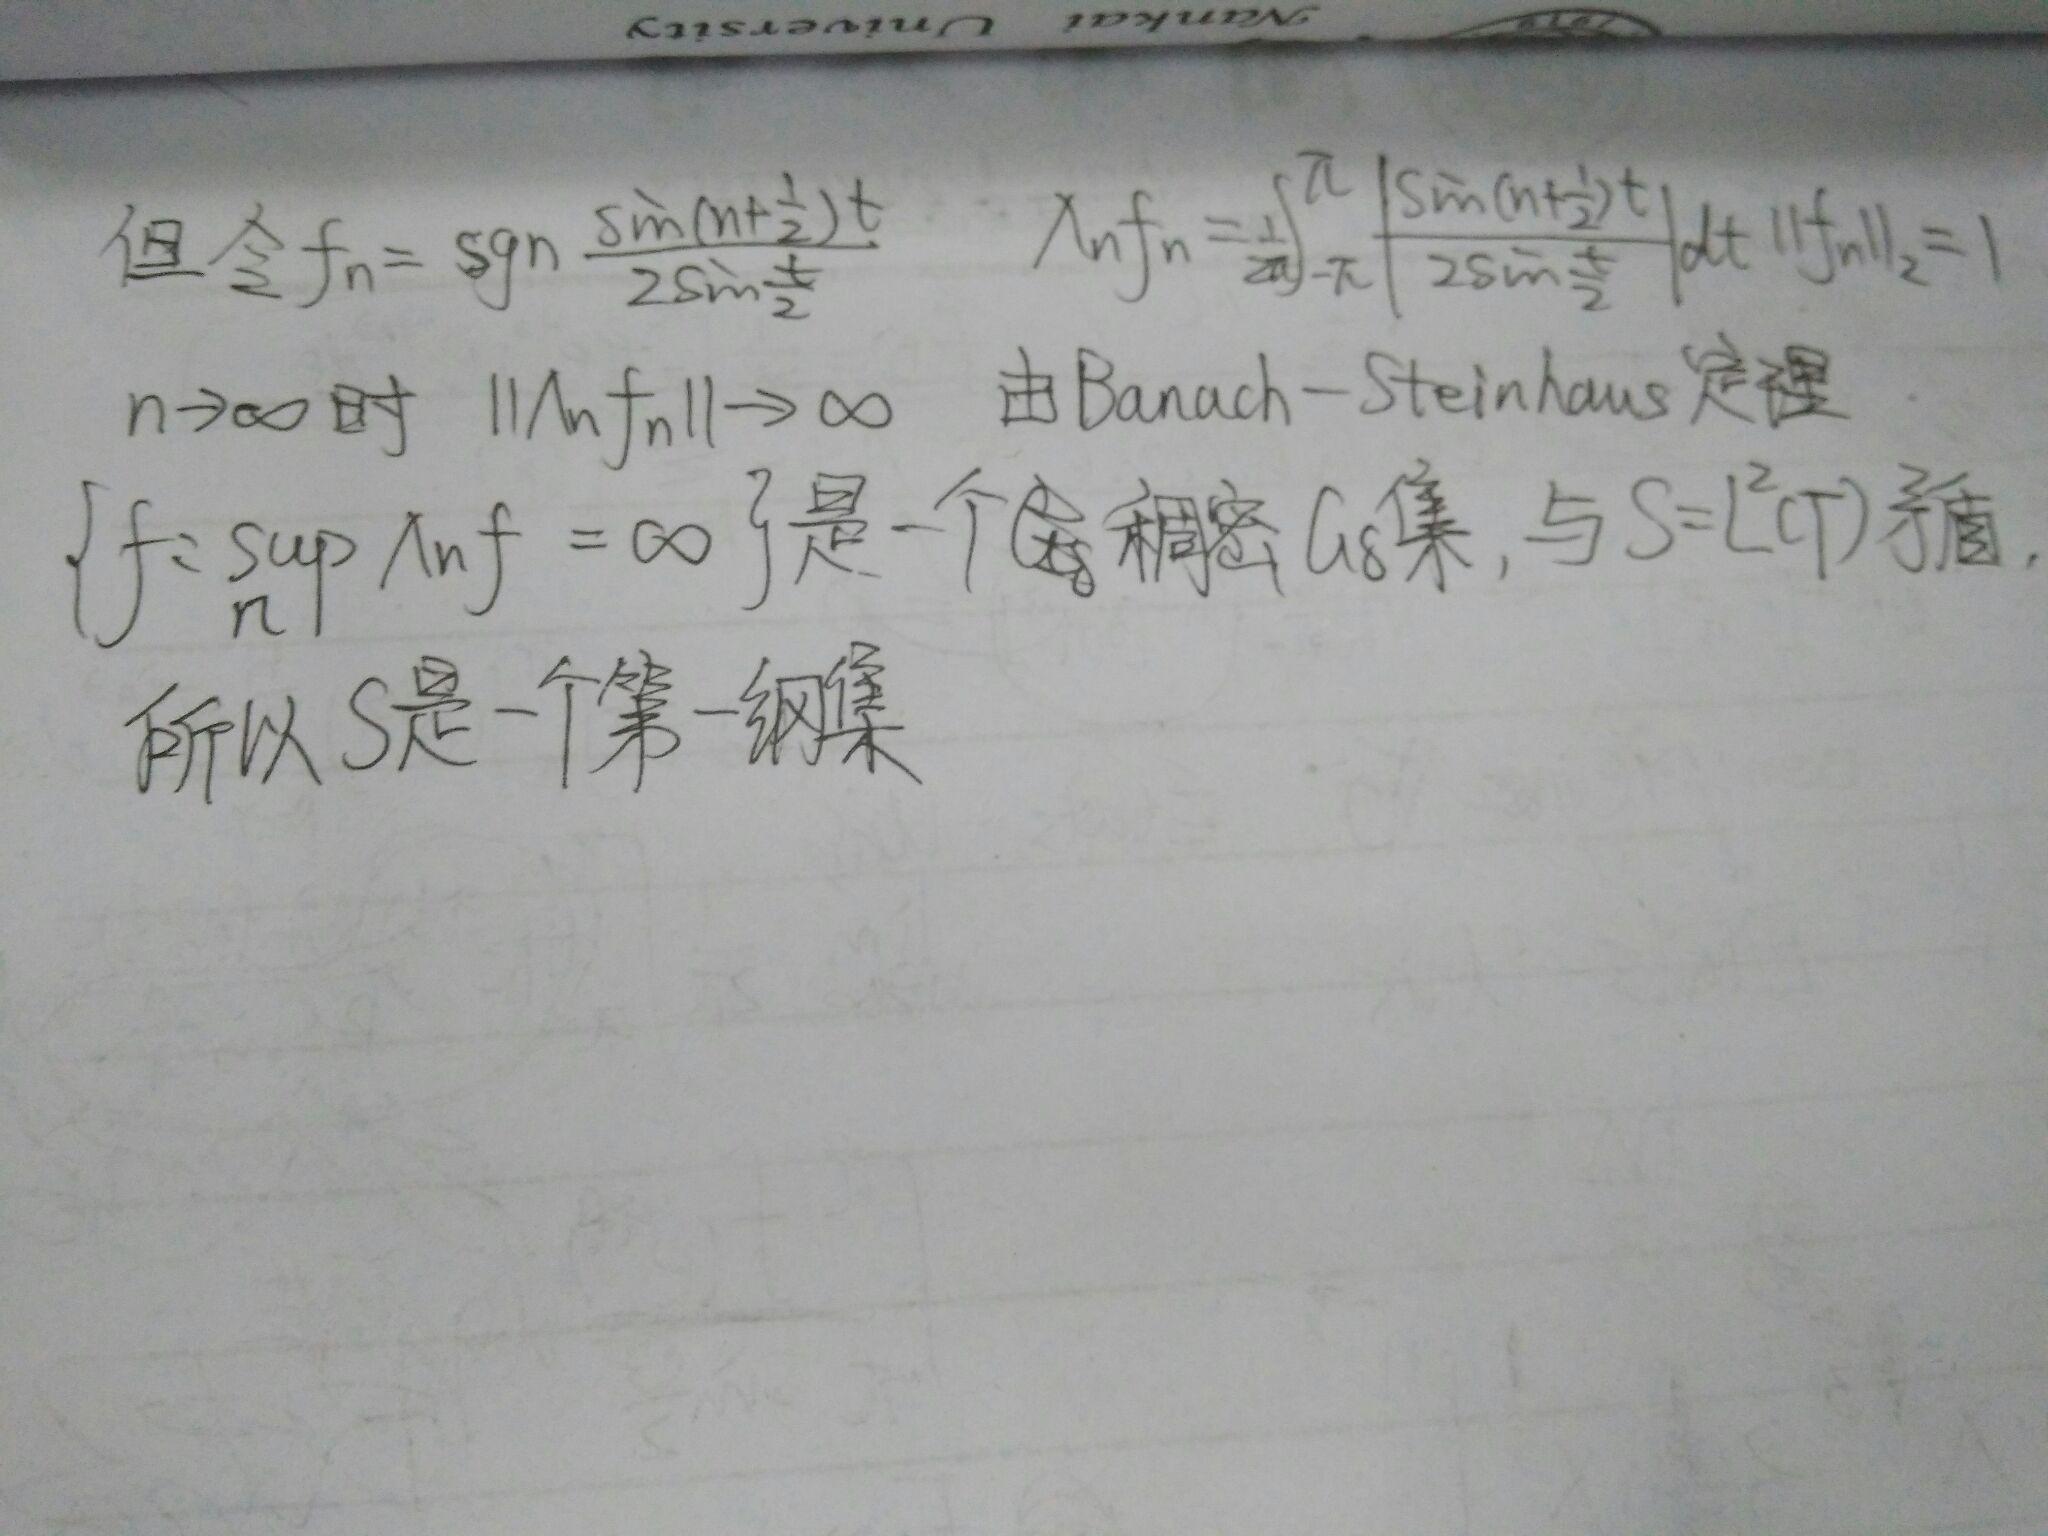 Nankai University
但令 fₙ = sgn sin(n+½)t / 2sin t/2   Λₙfₙ = 1/2π ∫_{-π}^{π} |sin(n+½)t / 2sin t/2| dt ‖fₙ‖₂ = 1
n→∞时 ‖Λₙfₙ‖→∞ 由Banach-Steinhaus定理
{f: sup_n Λₙf = ∞}是一个稠密Gδ集, 与S=L²(T)矛盾.
所以S是一个第一纲集